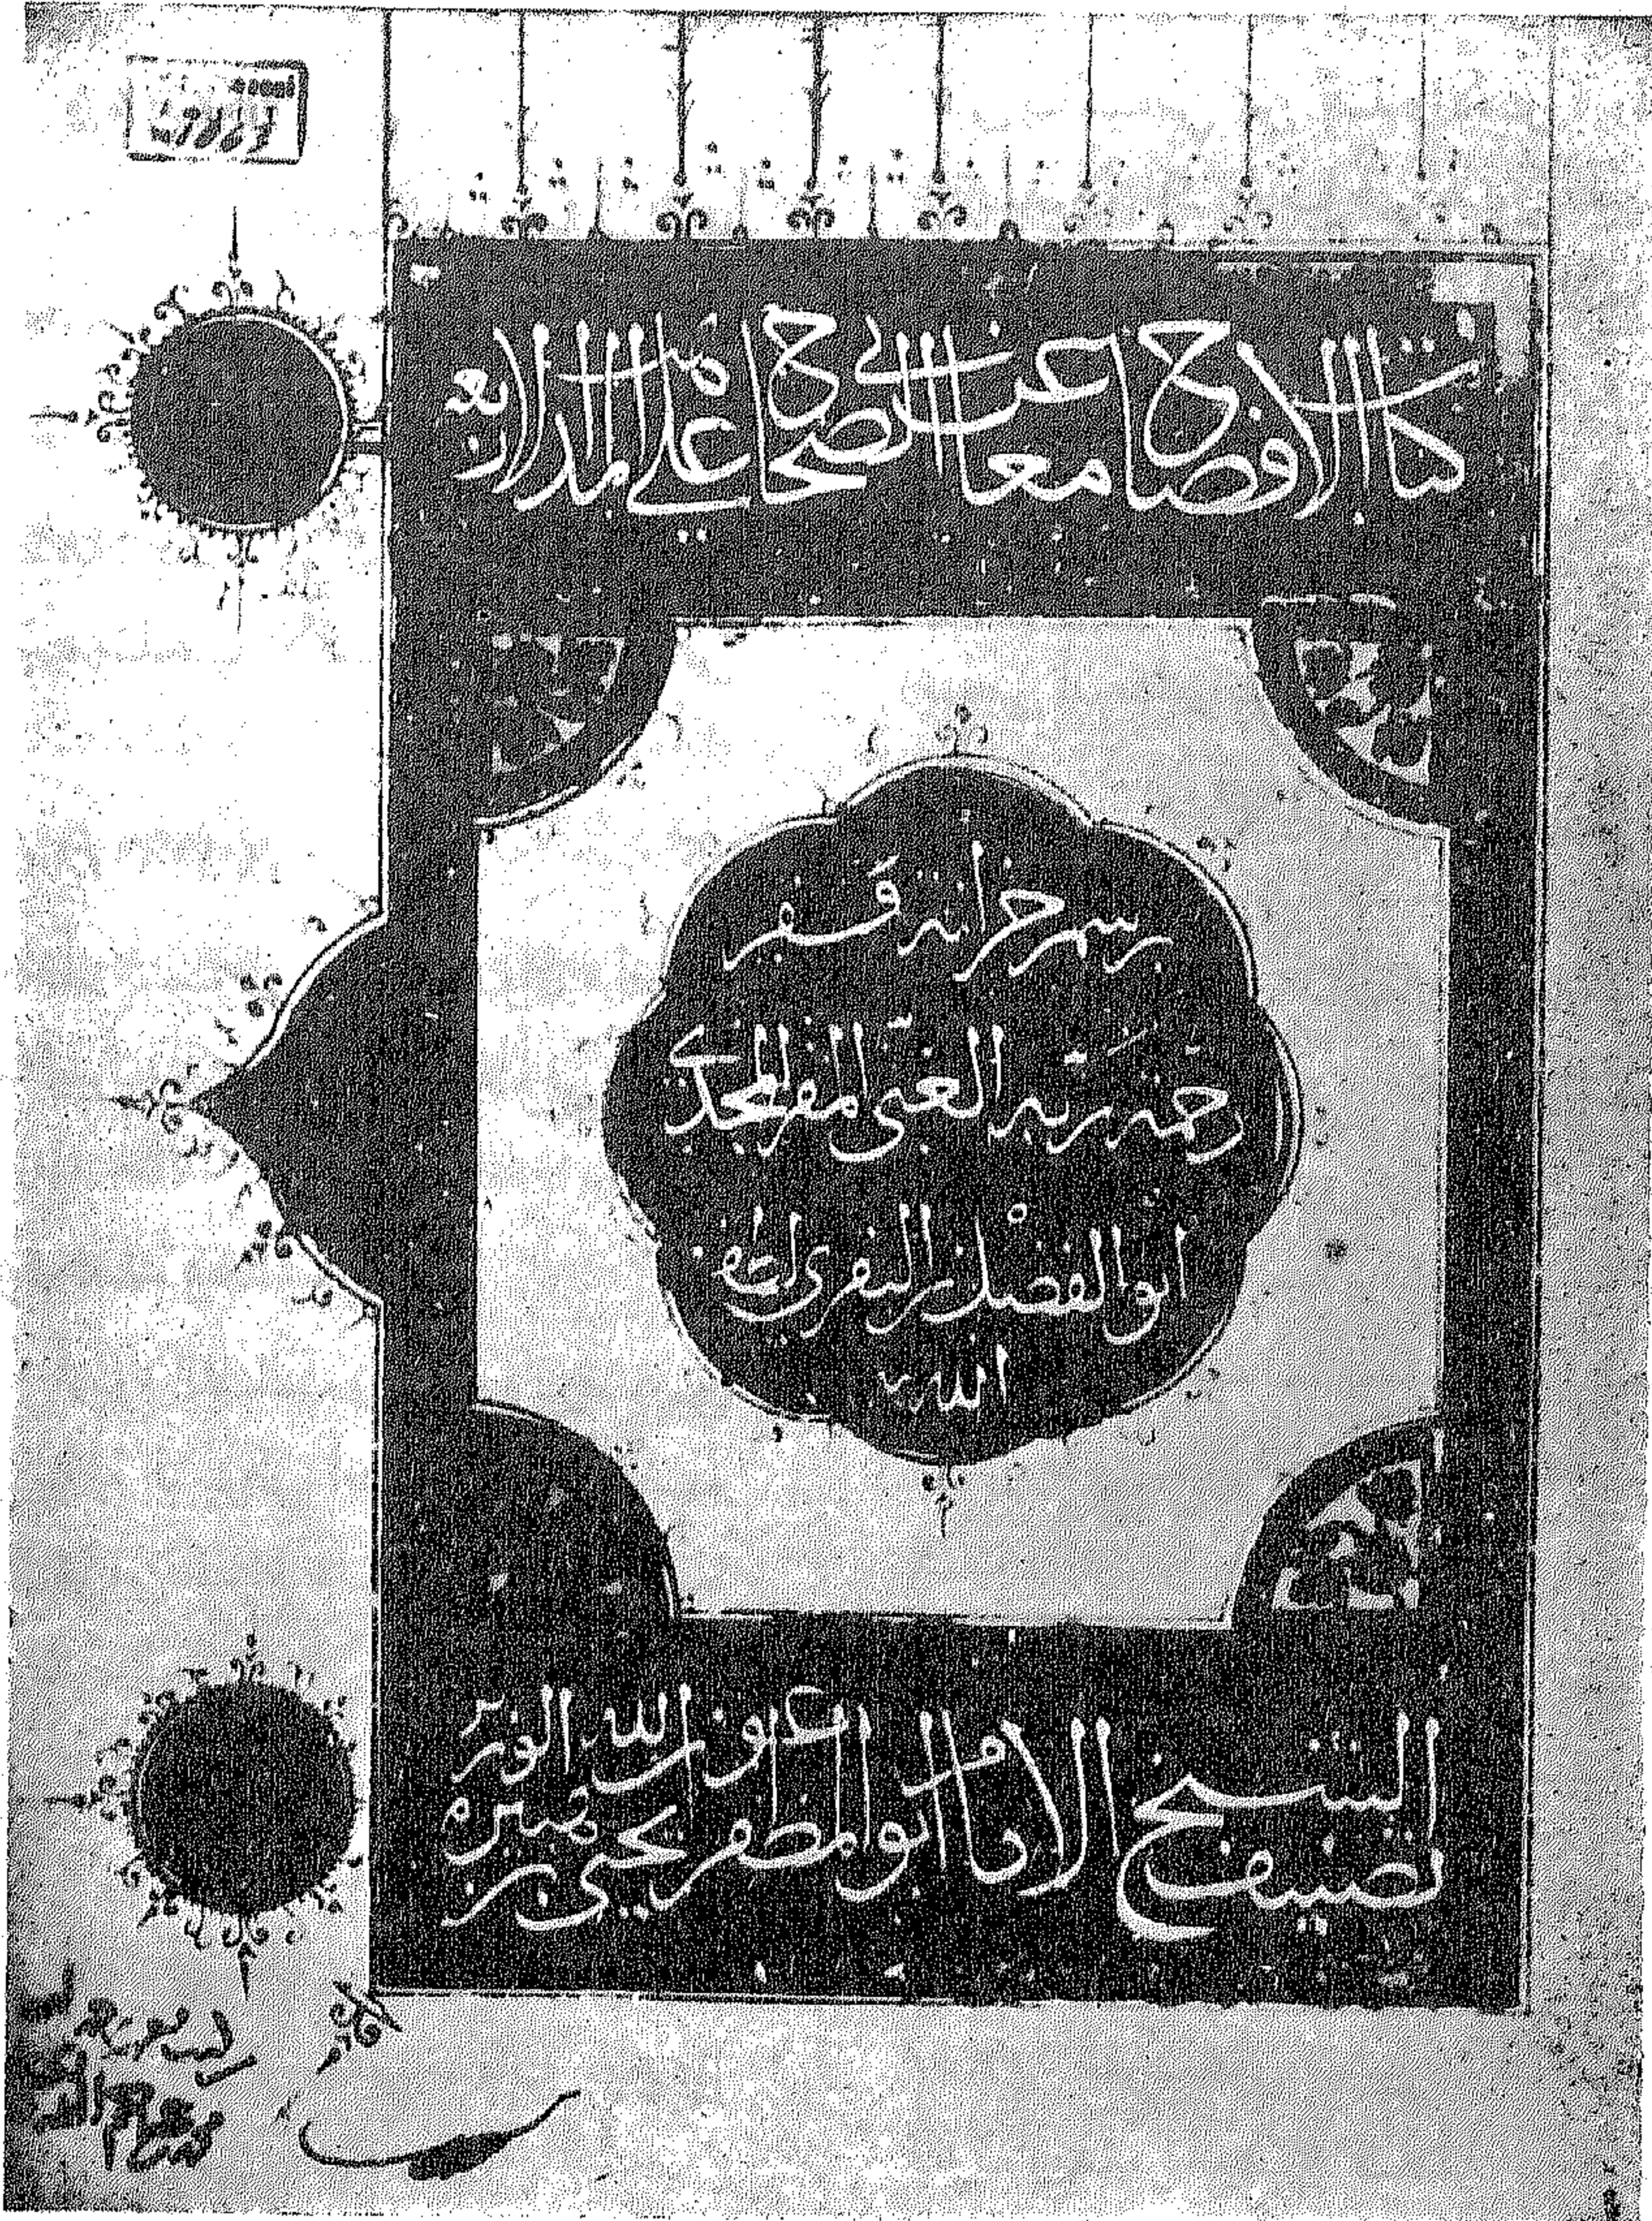 كتاب الافصاح عن معاني الصحاح على مذاهب الاربعة
برسم خزانة فقير
رحمة ربه الغنى المقر المجدى
ابو الفضل بن البقرى لطف
الله به
تصنيف الشيخ الامام ابو المظفر عون الدين يحيى بن هبيرة الوزير